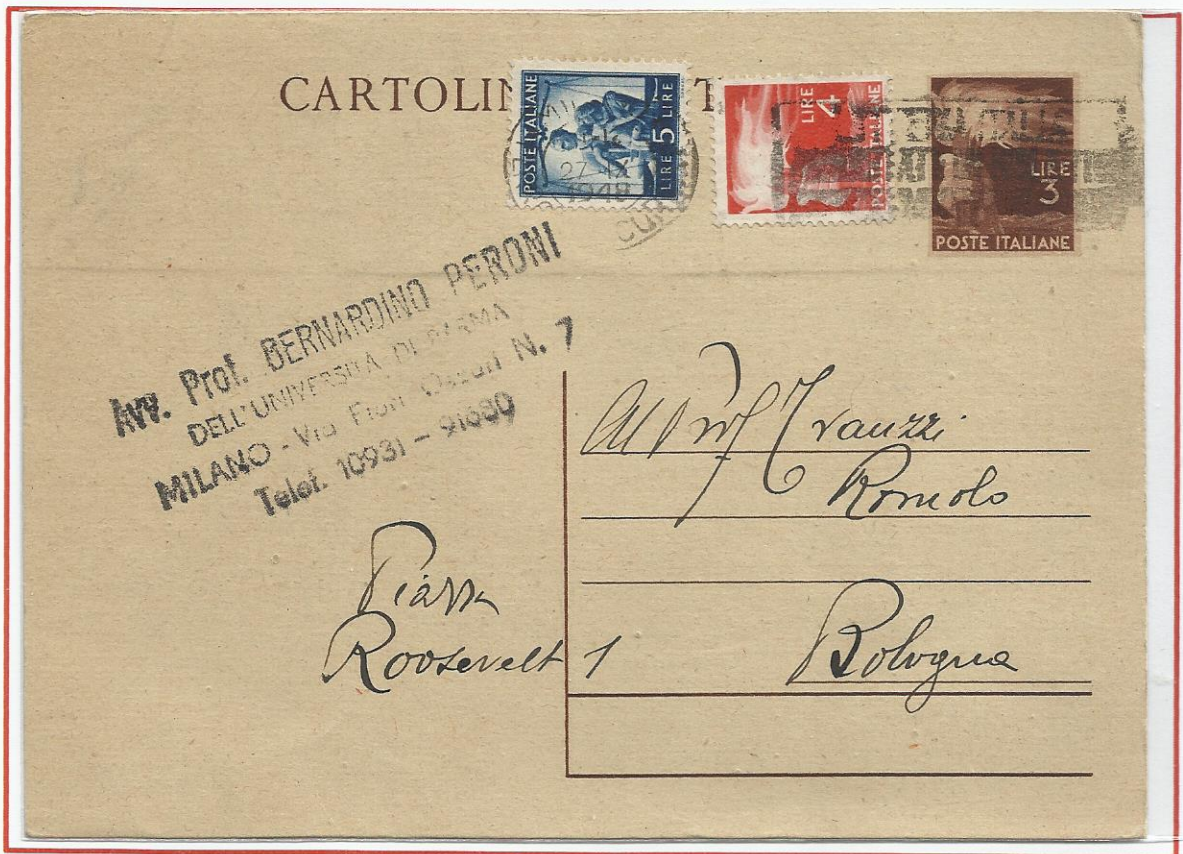 CARTOLIN T
POSTE ITALIANE
LIRE 5 LIRE
LIRE 4
POSTE ITALIANE
LIRE
3
POSTE ITALIANE
27
1948
Avv. Prof. BERNARDINO PERONI
DELL'UNIVERSITÀ DI PARMA
MILANO - Via Fiori Oscuri N. 7
Telef. 10931 - 91680
Al Prof Trauzzi
Romolo
Piazza
Roosevelt 1
Bologna